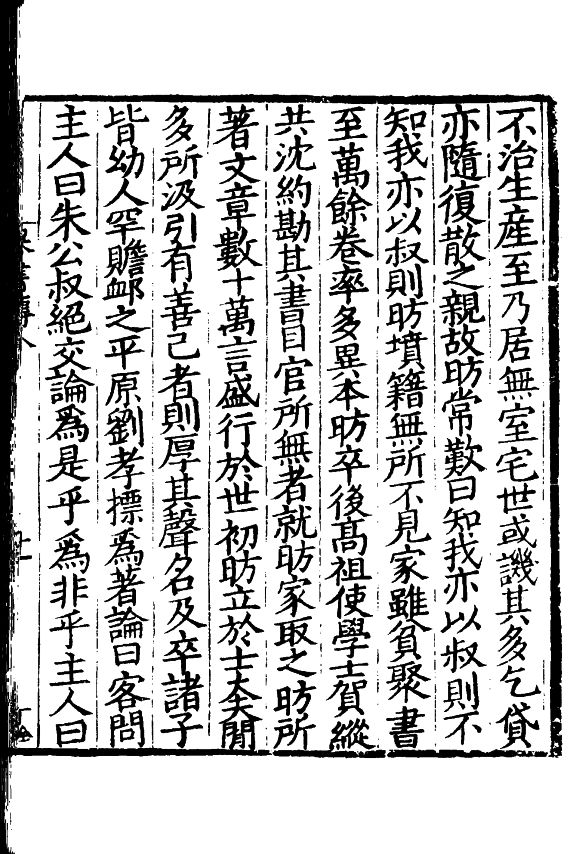 不治生産至乃居無室宅世或譏其多乞貸
亦隨復散之親故昉常歎曰知我亦以叔則不
知我亦以叔則昉墳籍無所不見家雖貧聚書
至萬餘卷率多異本昉卒後髙祖使學士賀縱
共沈約勘其書目官所無者就昉家取之昉所
著文章數十萬言盛行於世初昉立於士大夫閒
多所汲引有善己者則厚其聲名及卒諸子
皆幼人罕贍䘏之平原劉孝摽爲著論曰客問
主人曰朱公叔絕交論爲是乎爲非乎主人曰